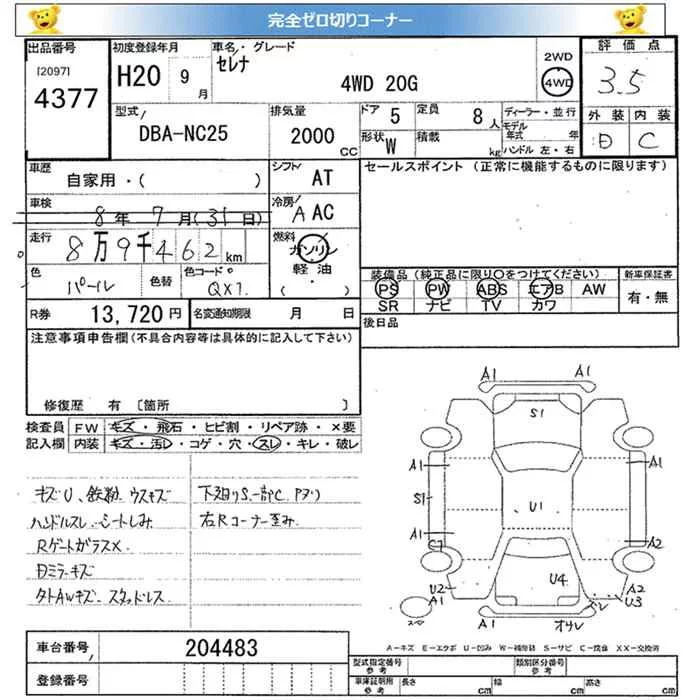 完全ゼロ切りコーナー
出品番号
[2097]
4377
初度登録年月
H20 9月
車名・グレード
セレナ
4WD 20G
2WD
4WD
評価点
3.5
外装 内装
D C
型式
DBA-NC25
排気量
2000 CC
ドア 5
定員 8人
形状 W
積載 kg
ディーラー・並行
モデル年式 年
ハンドル 左・右
車歴
自家用・( )
シフト AT
車検
8年7月(31日)
冷房 A AC
走行
8万9千462km
燃料
ガソリン
軽油
( ・ )
色 パール
色替
色コード QX1
セールスポイント (正常に機能するものに限ります)
装備品(純正品に限り○をつけてください)
PS PW ABS エアB AW
SR ナビ TV カワ
新車保証書
有・無
R券 13,720円
名変通知期限 月 日
後日品
注意事項申告欄(不具合内容等は具体的に記入して下さい)
修復歴 有 [箇所 ]
検査員記入欄
FW キズ・飛石・ヒビ割・リペア跡・×要
内装 キズ・汚レ・コゲ・穴・スレ・キレ・破レ
キズU、鉄粉 ウスキズ
ハンドルスレ シートしみ
Rゲートガラス×
Dミラーキズ
タトAWキズ スタッドレス
下廻りS、一部C Pヌリ
右Rコーナー歪み
A1 A1
S1
A1 A1
S1 U1
A1 A2
C1
U2 A1
U4
A2 U3
ズレ
A1 オサレ
A-キズ E-エクボ U-凹み W-補修跡 S-サビ C-腐食 XX-交換済
車台番号 204483
登録番号
型式指定番号 参考
類別区分番号 参考
車庫証明用 参考
長さ cm 幅 cm 高さ cm